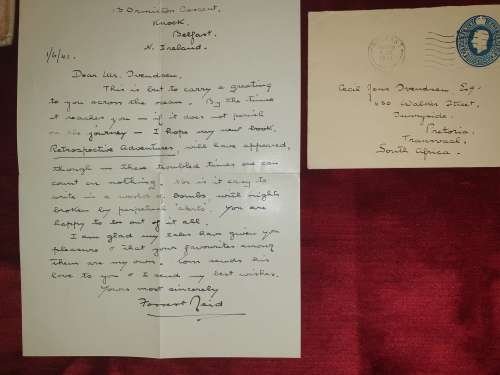 13 Ormiston Crescent,
Knock,
Belfast.
N. Ireland.
1/6/41.
Dear Mr. Ivendsen,
This is but to carry a greeting
to you across the ocean. By the time
it reaches you — if it does not perish
on the journey — I hope my new book,
Retrospective Adventures, will have appeared,
though — these troubled times one can
count on nothing. Nor is it easy to
write in a world of bombs, with nights
broken by perpetual 'alerts'. You are
happy to be out of it all.
I am glad my tales have given you
pleasure & that your favourites among
them are my own. sends his
love to you & I send my best wishes.
Yours most sincerely
Forrest Reid
Cecil Jens Ivendsen Esq.
Walker Street,
Sunnyside.
Pretoria.
Transvaal.
South Africa.